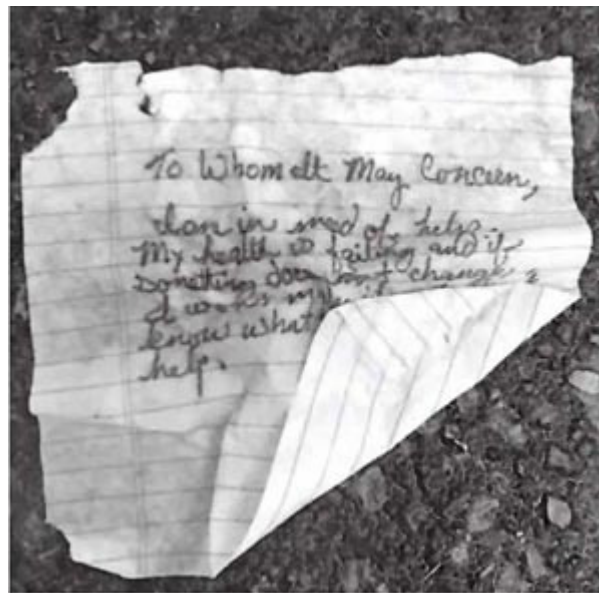 To Whom It May Concern,
in need of help.
My health is failing and if
someting does not change
I
know what
help.